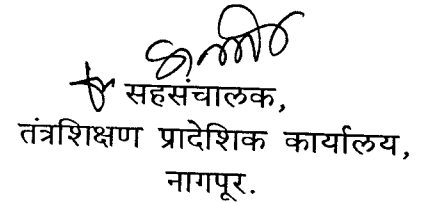 सहसंचालक,
तंत्रशिक्षण प्रादेशिक कार्यालय,
नागपूर.